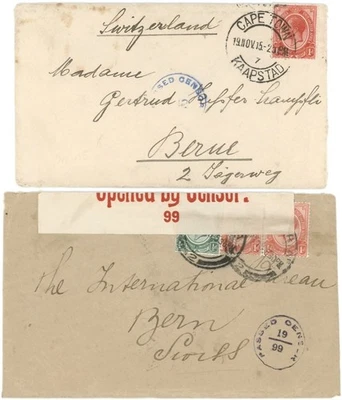 Switzerland
CAPE TOWN
19 NOV 15
7
KAAPSTAD
PASSED CENSOR
Madame
Gertrud
Berne
2 Jägerweg
Opened by Censor.
99
The International Bureau
Bern
Swiss
PASSED CENSOR
19
99